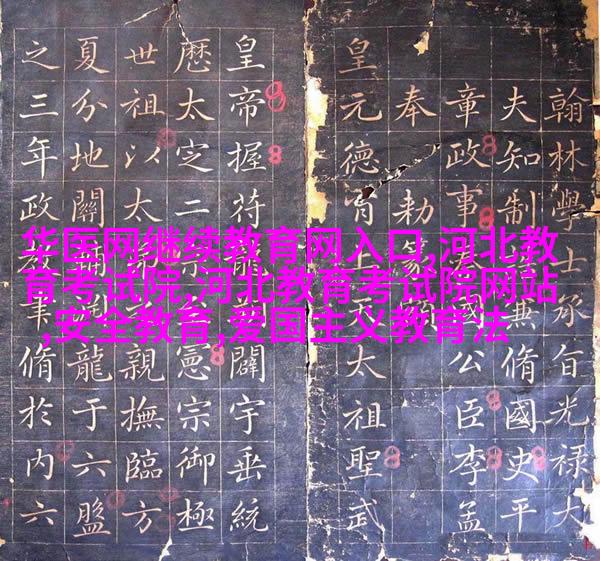 翰林學士承旨光祿大
夫知制兼脩國史平
章政事國公臣李孟
奉勅篆
皇元德胄太祖聖武
皇帝握符闢宇垂統
厯太㝎二宗憲宗御極
世祖以太親撫臨方
夏分地關龍于六盤
之三年政脩於內六
华医网继续教育网入口,河北教
育考试院,河北教育考试院网站
,安全教育,爱国主义教育法